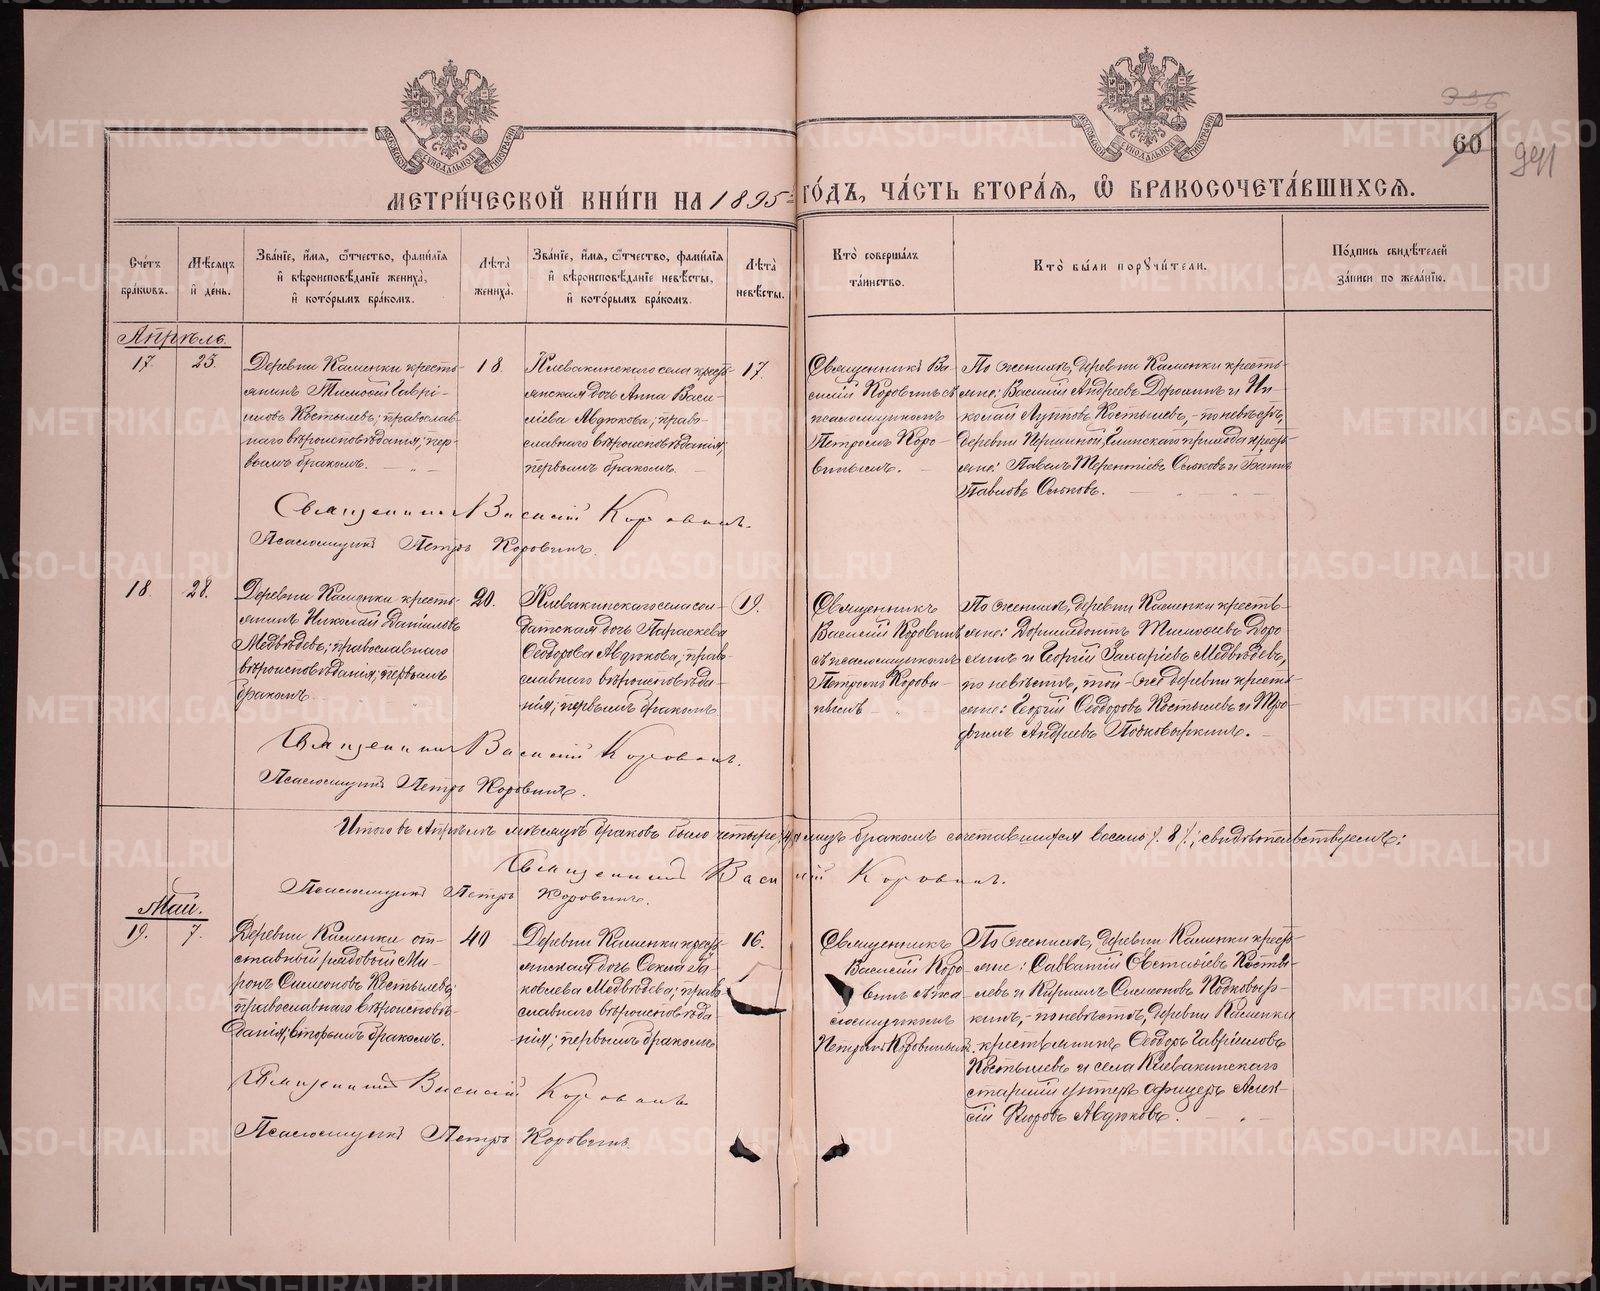 МЕТРИ́ЧЕСКОЙ КНИ́ГИ НА 1895 ГО́ДЪ, ЧА́СТЬ ВТОРА́Я, Ѿ БРАКОСОЧЕТА́ВШИХСЯ.
396
60
941
Сче́тъ бра́ковъ.
Мѣ́сяцъ и де́нь.
Зва́нїе, и́мя, ѻ́тчество, фами́лїя и҆ вѣроисповѣ́данїе жениха̀, и҆ кото́рымъ бра́комъ.
Лѣ́та жениха̀.
Зва́нїе, и́мя, ѻ́тчество, фами́лїя и҆ вѣроисповѣ́данїе невѣ́сты, и҆ кото́рымъ бра́комъ.
Лѣ́та невѣ́сты.
Кто̀ соверша́лъ та́инство.
Кто̀ бы́ли порꙋчи́тели.
По́дпись свидѣ́телей за́писи по жела́нїю.
Апрѣль.
17.
25.
Деревни Каменки кресть-
янинъ Тимоѳей Гаврі-
иловъ Костылевъ; православ-
наго вѣроисповѣданія, пер-
вымъ бракомъ.
18.
Клевакинскаго села кресть-
янская дочь Анна Васи-
ліева Авдюкова; право-
славнаго вѣроисповѣданія,
первымъ бракомъ.
17.
Священникъ Ва-
силій Коровинъ съ
псаломщикомъ
Петромъ Коро-
винымъ.
По женихѣ, деревни Каменки кресть-
яне: Василій Андреевъ Дорохинъ и Ни-
колай Луповъ Костылевъ, - по невѣстѣ,
деревни Першиной, Глинскаго прихода кресть-
яне: Павелъ Терентіевъ Осюковъ и Іоаннъ
Павловъ Осюковъ.
Священникъ Василій Коровинъ.
Псаломщикъ Петръ Коровинъ.
18.
28.
Деревни Каменки кресть-
янинъ Николай Даніиловъ
Медвѣдевъ; православнаго
вѣроисповѣданія, первымъ
бракомъ
20.
Клевакинскаго села сол-
датская дочь Параскева
Ѳеодорова Авдюкова; право-
славнаго вѣроисповѣда-
нія; первымъ бракомъ
19.
Священникъ
Василій Коровинъ
съ псаломщикомъ
Петромъ Корови-
нымъ
По женихѣ, деревни Каменки кресть-
яне: Дормедонтъ Тимоѳеевъ Доро-
хинъ и Георгій Захаріевъ Медвѣдевъ,
по невѣстѣ, той-же деревни кресть-
яне: Георгій Ѳеодоровъ Костылевъ и Тро-
фимъ Андреевъ Подковыркинъ.
Священникъ Василій Коровинъ.
Псаломщикъ Петръ Коровинъ.
Итого въ Апрѣлѣ мѣсяцѣ браковъ было четыре /4/ лицъ бракомъ сочетавшихся восемь /. 8 /.; свидѣтельствуемъ:
Священникъ Василій Коровинъ.
Псаломщикъ Петръ Коровинъ.
Май.
19.
7.
Деревни Каменки от-
ставный рядовый Ми-
ронъ Симеоновъ Костылевъ;
православнаго вѣроисповѣ-
данія; вторымъ бракомъ.
40
Деревни Каменки кресть-
янская дочь Ѳекла Іа-
ковлева Медвѣдева; право-
славнаго вѣроисповѣда
нія; первымъ бракомъ
16.
Священникъ
Василій Коро-
винъ съ пса-
ломщикомъ
Петромъ Коровинымъ.
По женихѣ, деревни Каменки кресть-
яне: Савватій Евстаѳіевъ Косты-
левъ и Кириллъ Симеоновъ Подковыр-
кинъ, - по невѣстѣ, деревни Каменки
крестьянинъ Ѳеодоръ Гавріиловъ
Костылевъ и села Клевакинскаго
старшій унтеръ офицеръ Алек-
сій Авдюковъ.
Священникъ Василій Коровинъ
Псаломщикъ Петръ Коровинъ
METRIKI.GASO-URAL.RU